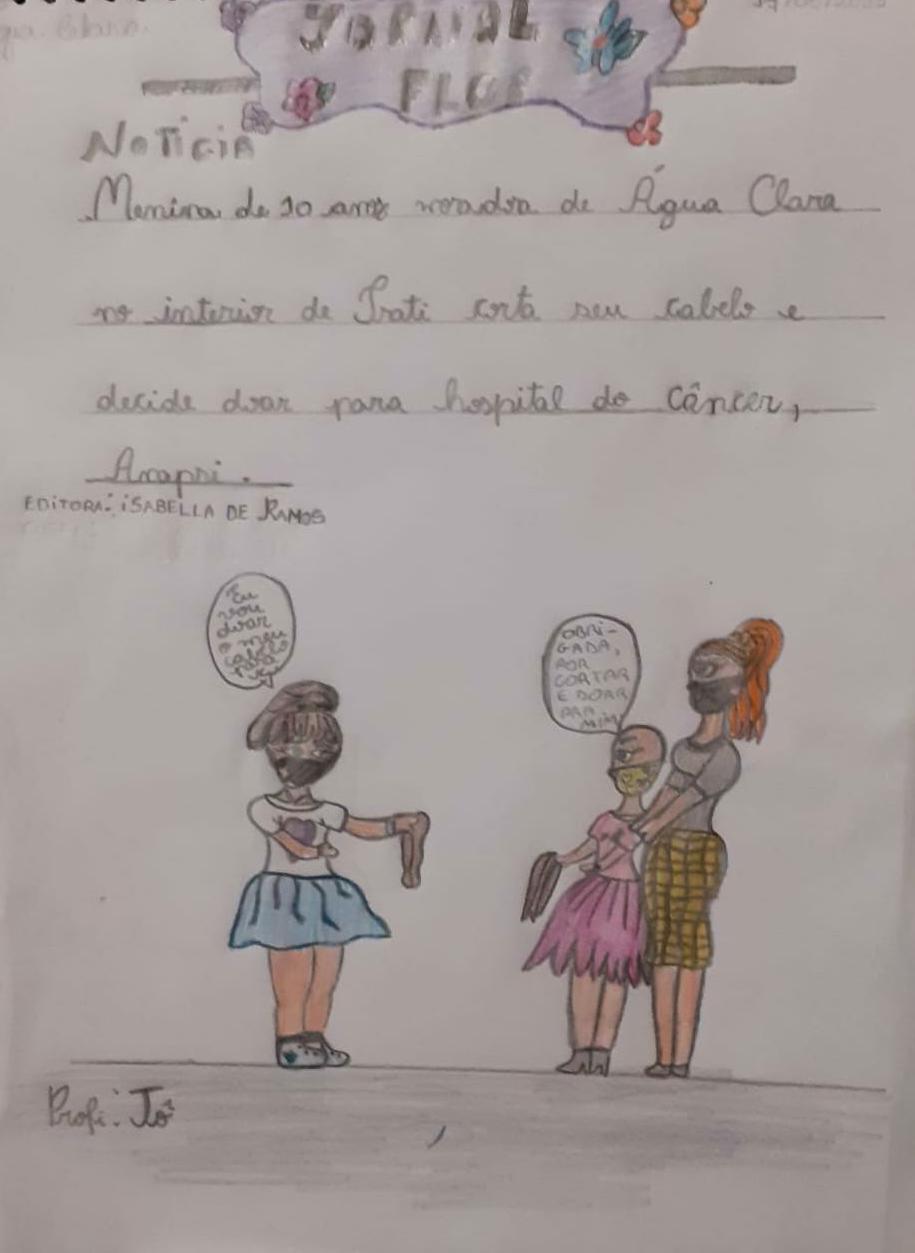 JORNAL
FLOR
NOTICIA
Menina de 10 anos moradra de Água Clara
no interior de Irati corta seu cabelo e
decide doar para hospital do câncer,
Arapri.
EDITORA: ISABELLA DE RAMOS
Eu
vou
doar
o meu
cabelo
para
OBRI-
GADA,
POR
CORTAR
E DOAR
PRA
MIM
Profi: Jô